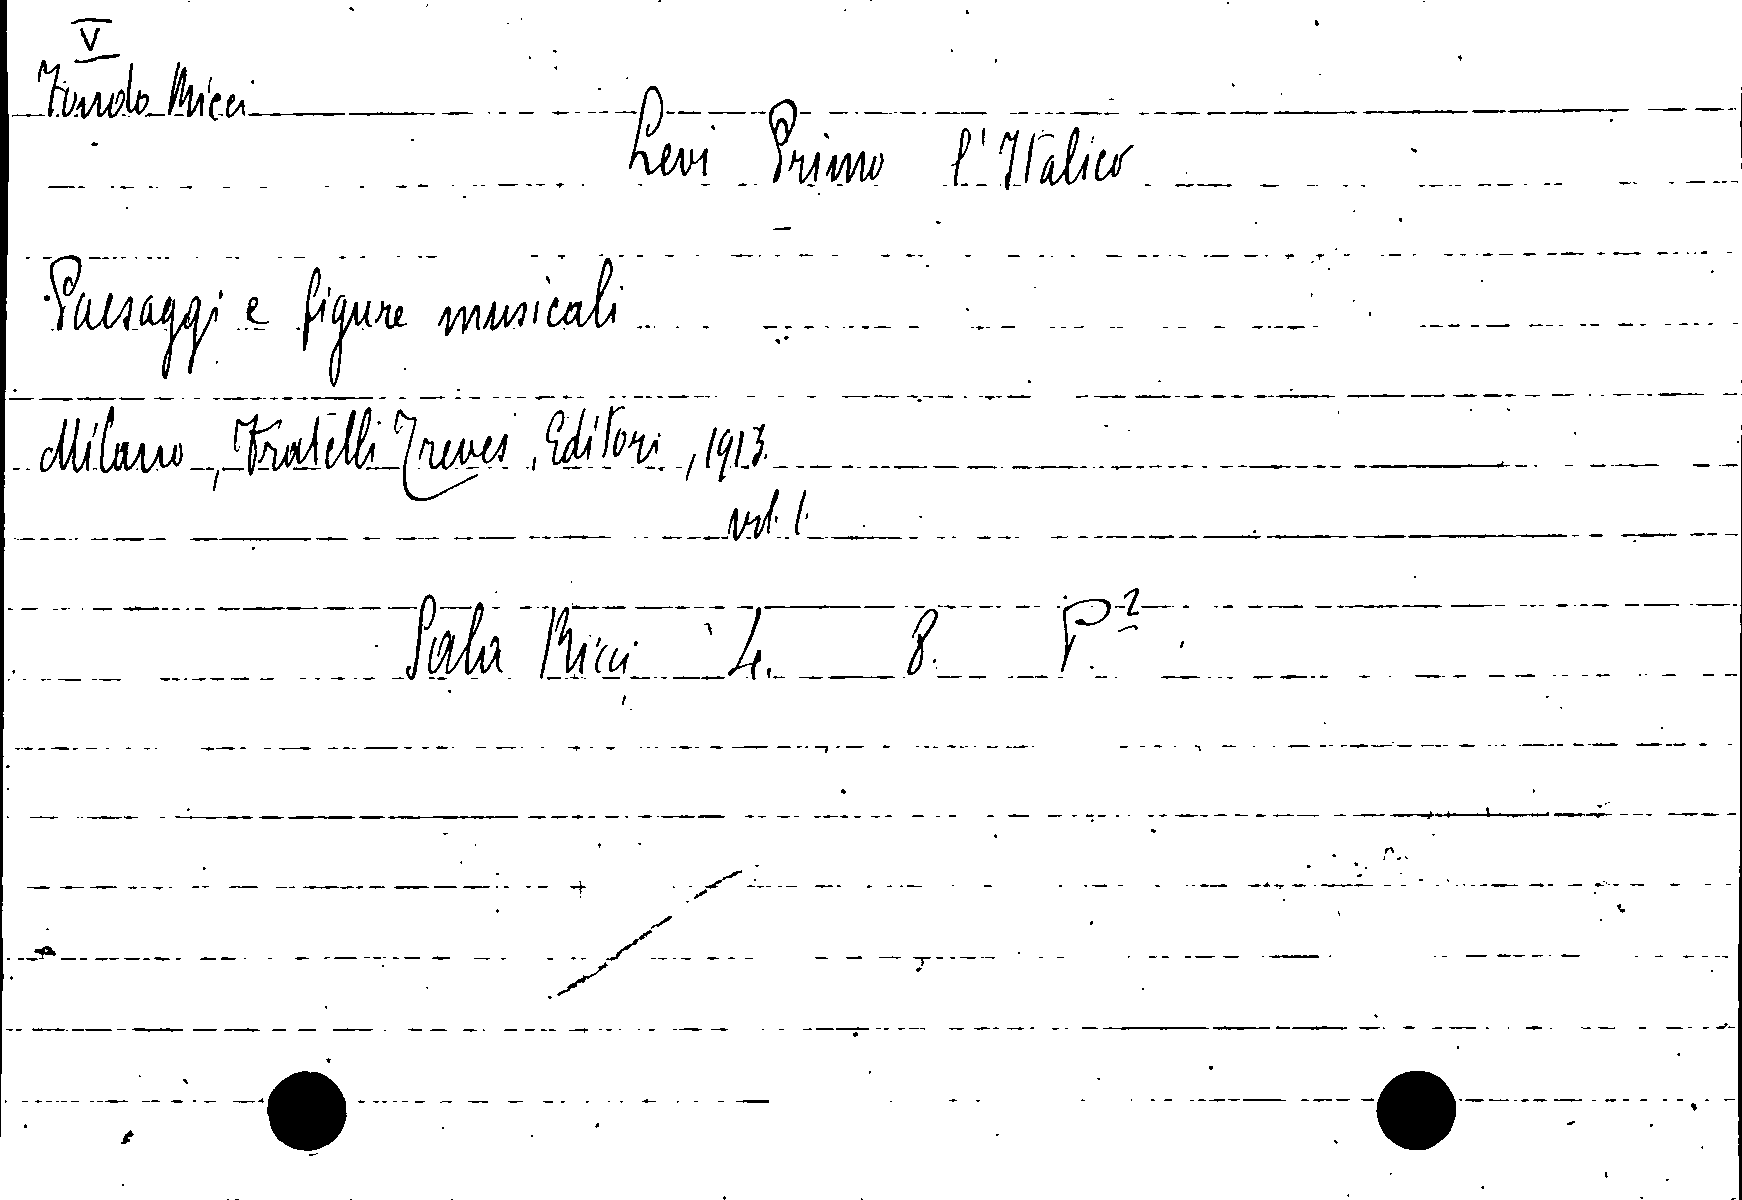 V
Fondo Ricci
Levi Primo l'Italico
Paesaggi e figure musicali
Milano, Fratelli Treves, Editori, 1913.
vol. 1.
Sala Ricci 4. 8. P²